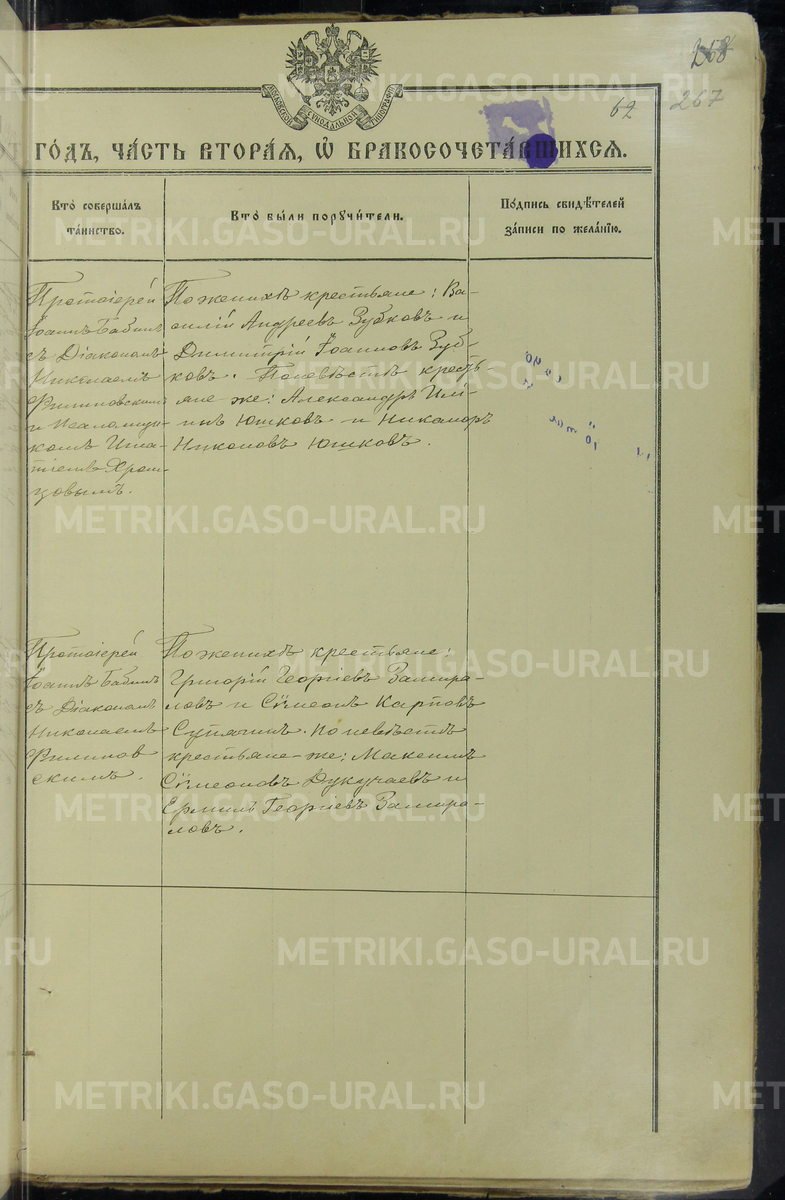 268
62 267
МОСКОВСКОЙ СУНОДАЛЬНОЙ ТИПОГРАФІИ
ГО́ДЪ, ЧА́СТЬ ВТОРА́Я, Ѡ҆ БРАКОСОЧЕТА́ВШИХСЯ.
Кто̀ соверша́лъ
та́инство.
Кто̀ бы́ли порꙋчи́тели.
По́дпись свидѣ́телей
за́писи по жела́нію.
Протоіерей
Іоаннъ Бабинъ
съ Діакономъ
Николаемъ
Филиповскимъ
и Псаломщи-
комъ Игна-
тіемъ Хром-
цовымъ.
По женихѣ крестьяне: Ва-
силій Андреевъ Зубковъ и
Димитрій Іоанновъ Зуб-
ковъ. По невѣстѣ кресть-
яне же: Александръ Иль-
инъ Юшковъ и Никаноръ
Никоновъ Юшковъ.
Протоіерей
Іоаннъ Бабинъ
съ Діакономъ
Николаемъ
Филипов
скимъ.
По женихѣ крестьяне:
Григорій Георгіевъ Замира-
ловъ и Сѵмеонъ Карповъ
По невѣстѣ
крестьяне-же: Максимъ
Сѵмеоновъ Дукучаевъ и
Ермилъ Георгіевъ Замира-
ловъ.
METRIKI.GASO-URAL.RU